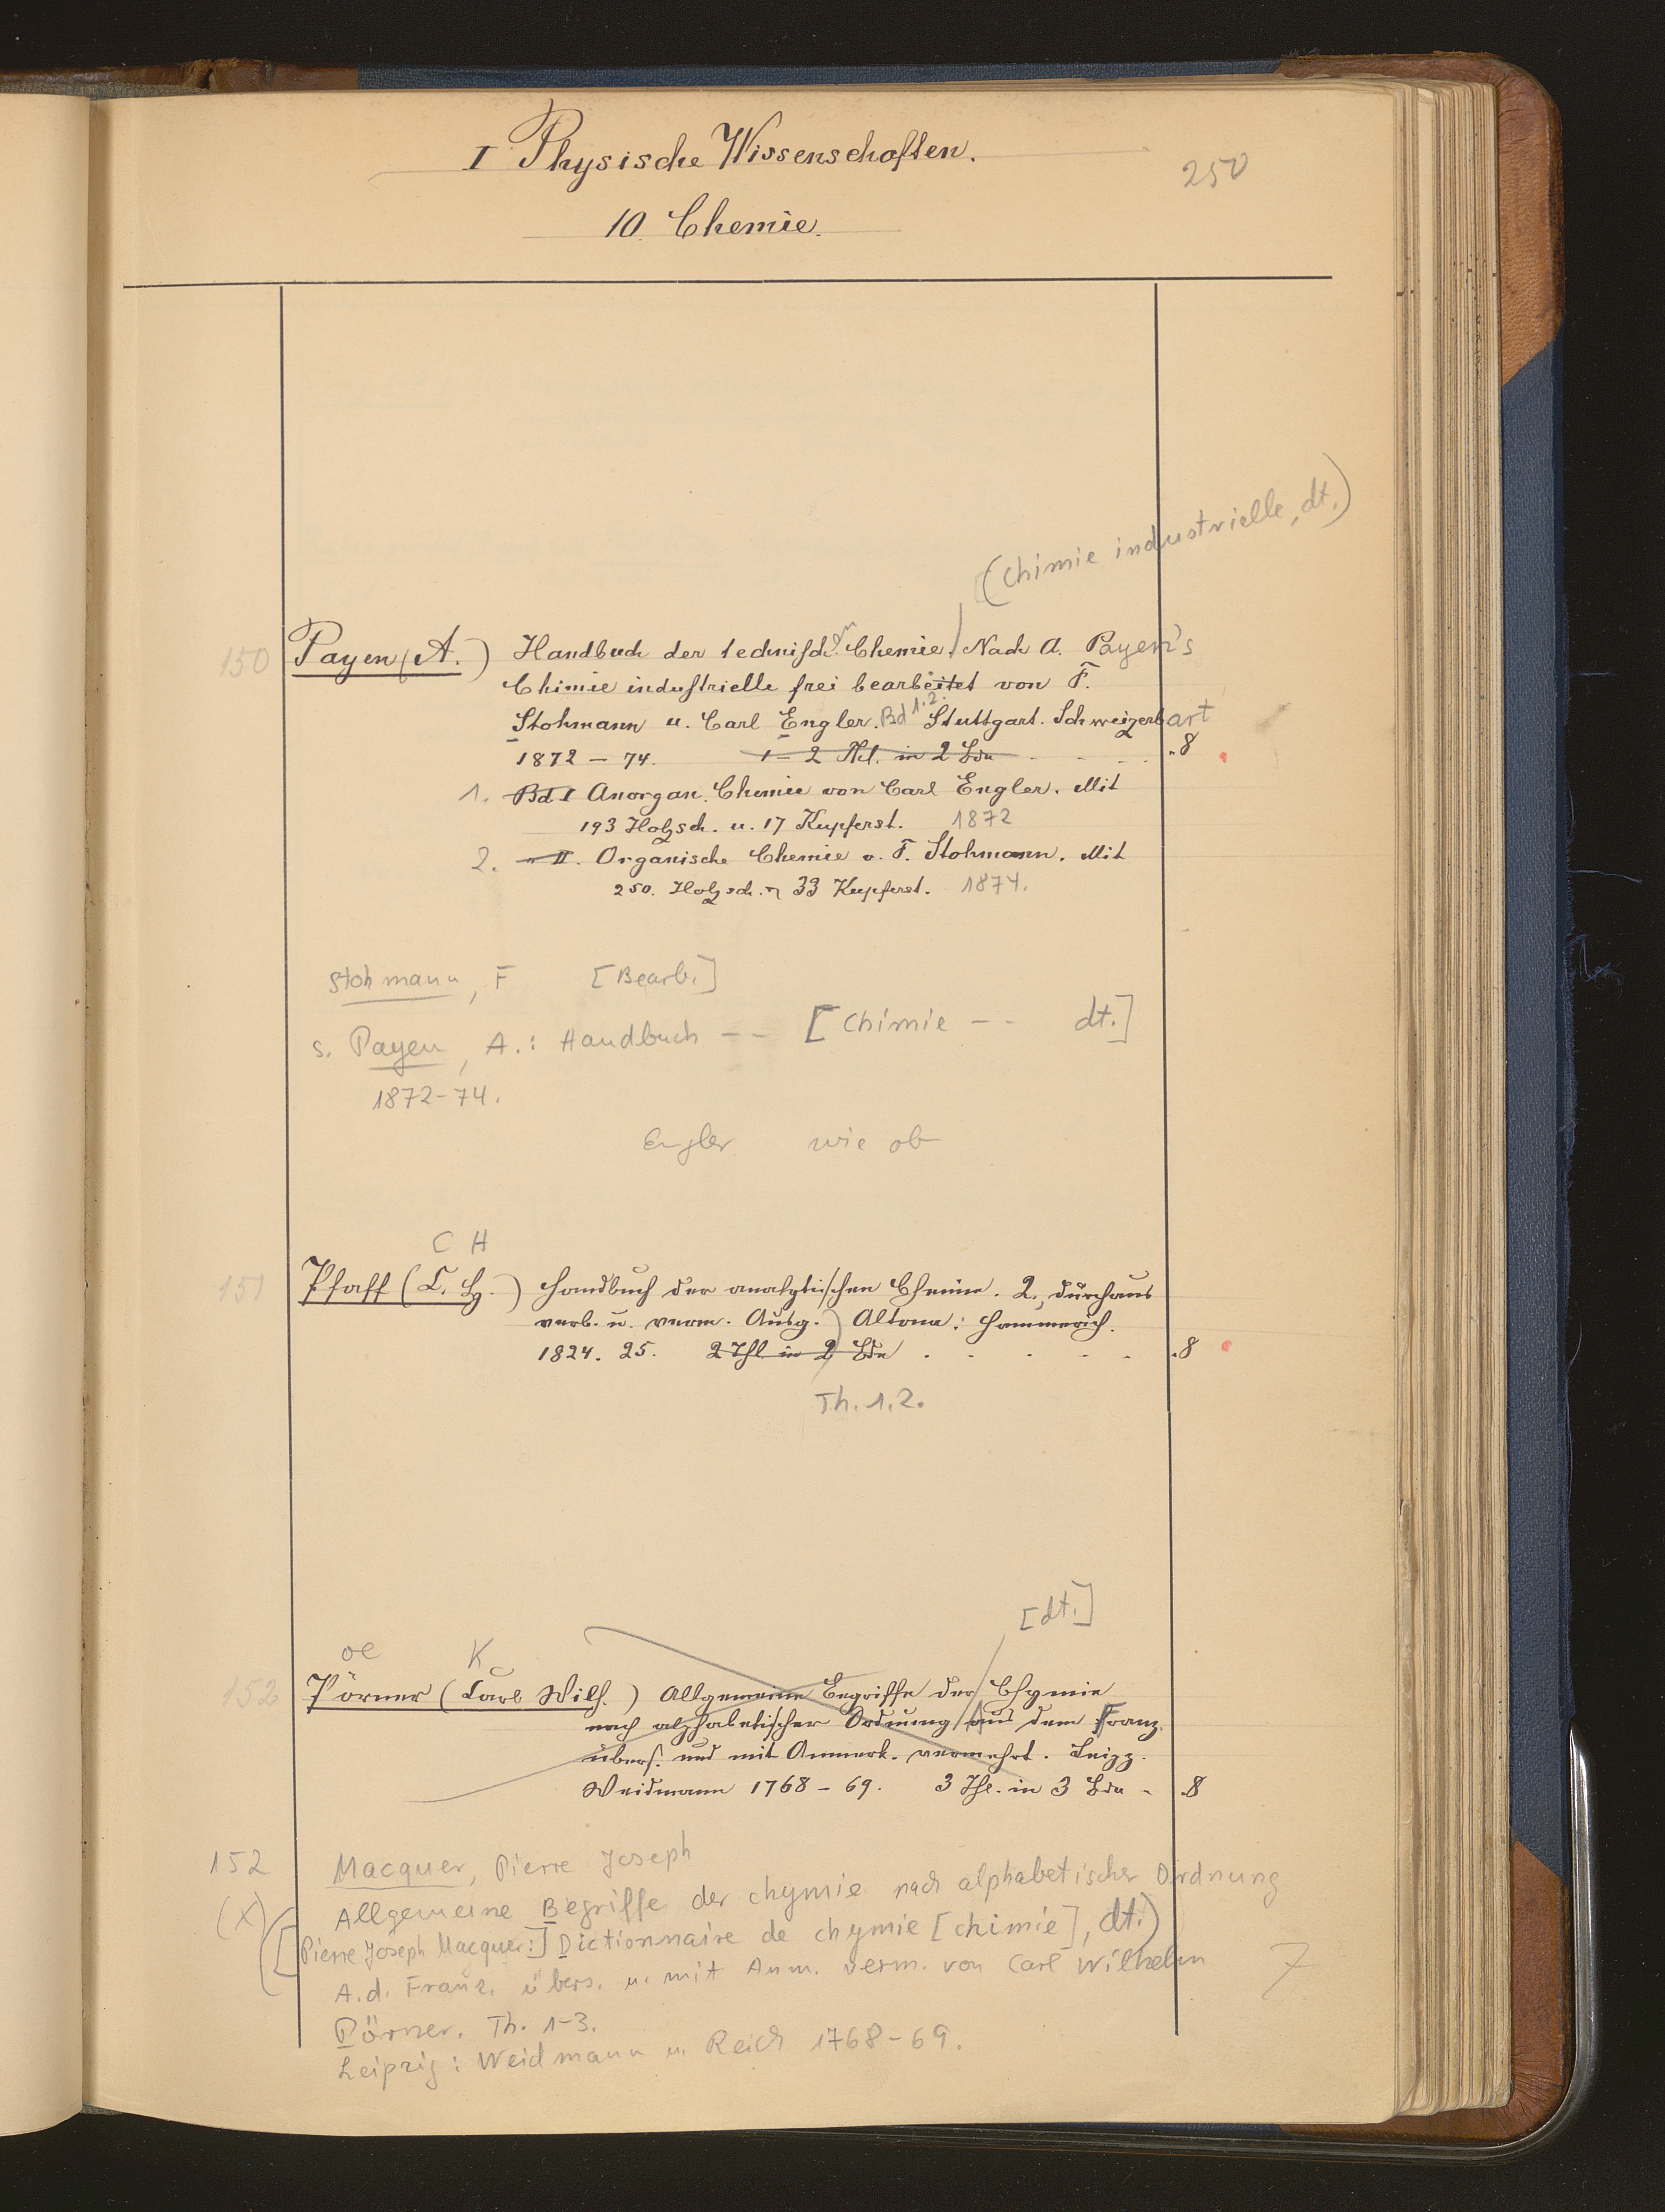 I Physische Wissenschaften.
250
10. Chemie.
(Chimie industrielle, dt.)
150 Payen (A.) Handbuch der technisch. en Chemie. / Nach A. Payen's
Chimie industrielle frei bearbeitet von F.
Stohmann u. Carl Engler. Bd 1.2. Stuttgart. Schweizerbart
1872 – 74. 1 – 2 Thl. in 2 Bdn - - - - . 8
1. Bd I Anorgan. Chemie von Carl Engler. Mit
193 Holzsch. u. 17 Kupferst. 1872
2. " II. Organische Chemie v. F. Stohmann. Mit
250. Holzsch. u. 33 Kupferst. 1874.
Stohmann, F [Bearb.]
s. Payen, A.: Handbuch -- [Chimie -- dt.]
1872-74.
Engler wie ob
C H
151 Pfaff (C. H.) Handbuch der analytischen Chemie. 2., durchaus
verb. u. verm. Ausg. ) Altona: Hammerich.
1824. 25. 2 Thl. in 2 Bdn . . . . . . 8
Th. 1.2.
[dt.]
oe K
152 Pörner (Carl Wilh.) Allgemeine Begriffe der / Chymie
nach alphabetischer Ordnung / Aus dem Franz.
übers. und mit Anmerk. vermehrt. Leipz.
Weidmann 1768 – 69. 3 Thl. in 3 Bdn - . 8
152 Macquer, Pierre Joseph
(X) Allgemeine Begriffe der chymie nach alphabetischer Ordnung
([Pierre Joseph Macquer:] Dictionnaire de chymie [chimie], dt.)
A.d. Franz. übers. u. mit Anm. verm. von Carl Wilhelm 7
Pörner. Th. 1-3.
Leipzig: Weidmann u. Reich 1768-69.